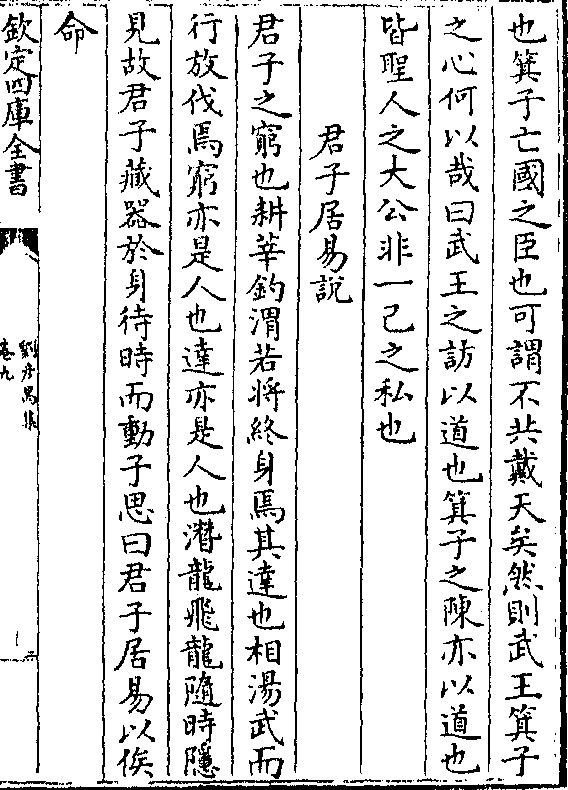 也箕子亡國之臣也可謂不共戴天矣然則武王箕子
之心何以哉曰武王之訪以道也箕子之陳亦以道也
皆聖人之大公非一己之私也
君子居易說
君子之窮也耕莘釣渭若將終身焉其達也相湯武而
行放伐焉窮亦是人也達亦是人也潛龍飛龍隨時隱
見故君子藏器於身待時而動子思曰君子居易以俟
命
欽定四庫全書
卷九